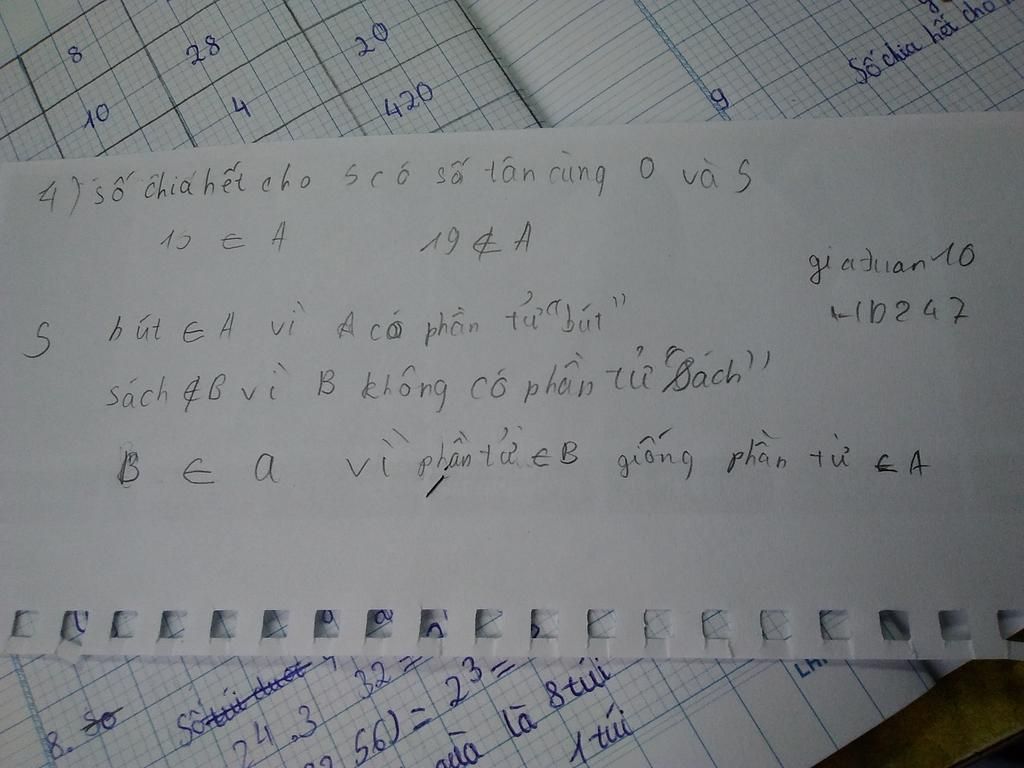 8 28 20
10 4 420
9
Số chia hết cho
4) số chia hết cho 5 có số tân cùng 0 và 5
10 ∈ A 19 ∉ A
giatuan10
HD247
5 bút ∈ A vì A có phần tử "bút"
sách ∉ B vì B không có phần tử "Sách"
B ∈ a vì phần tử ∈ B giống phần tử ∈ A
8. Số
24.3 32 =
56) = 2³ =
là 8 túi
1 túi